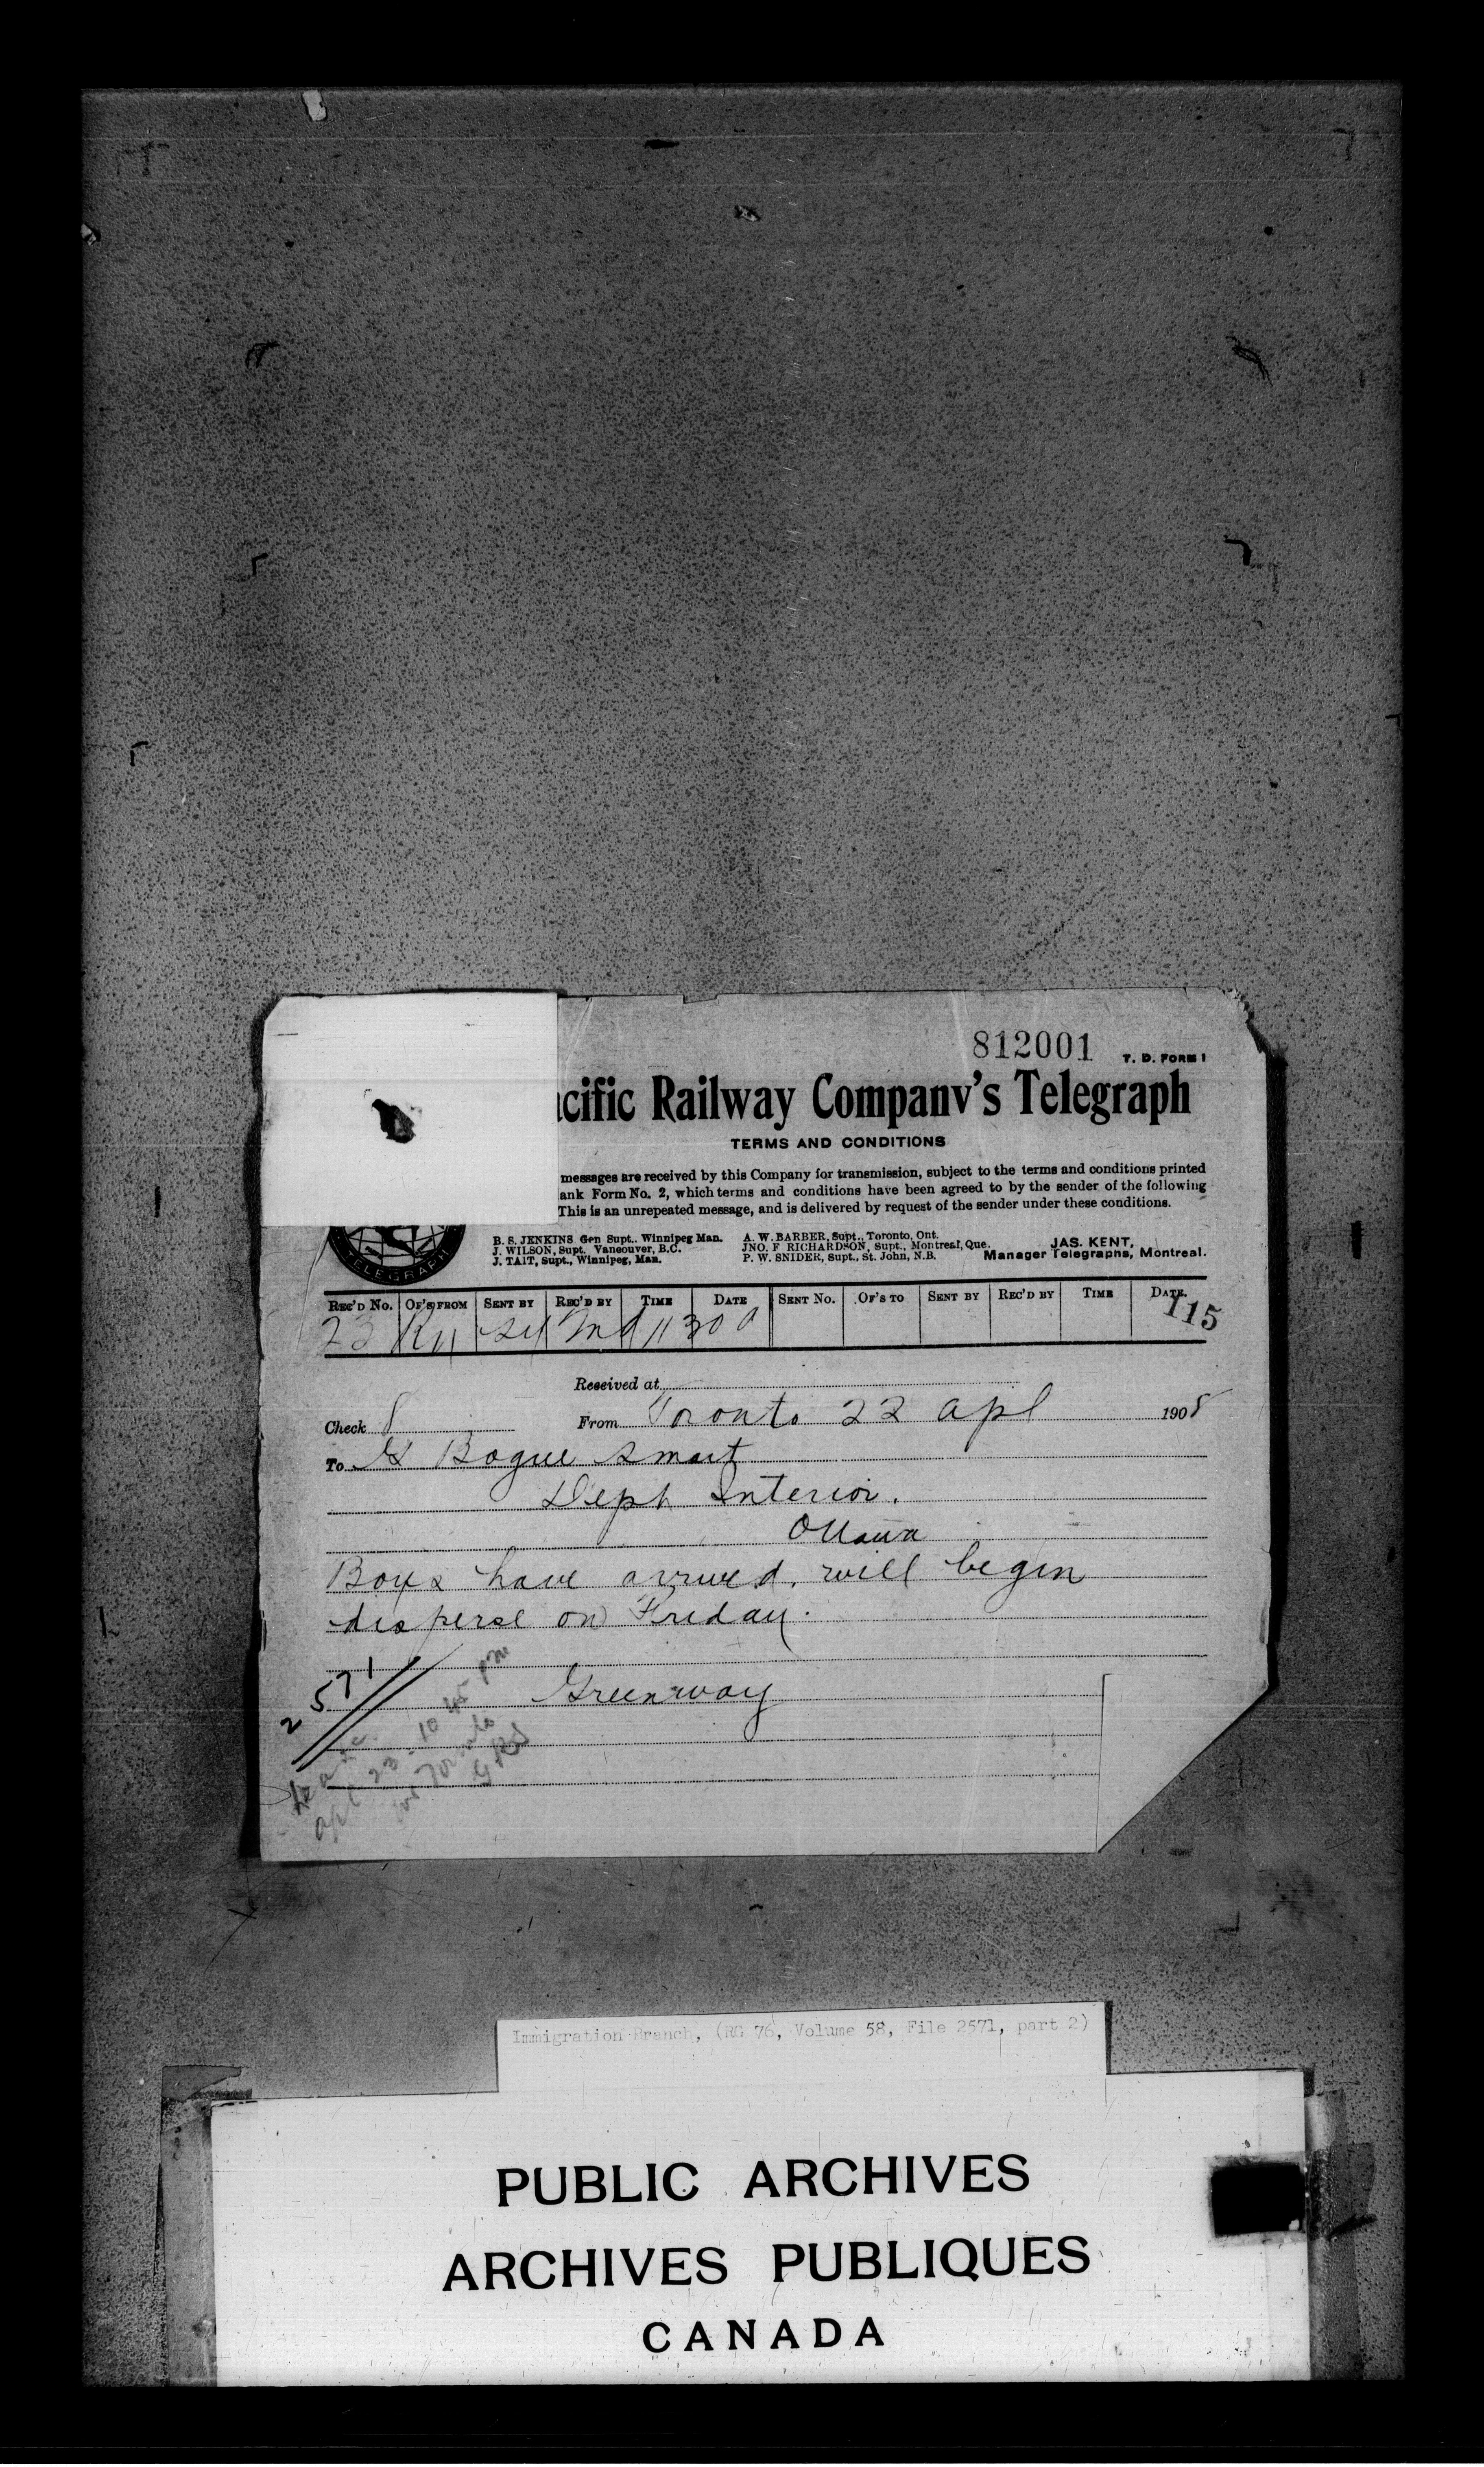 812001 T. D. FORM 1
acific Railway Company's Telegraph
TERMS AND CONDITIONS
messages are received by this Company for transmission, subject to the terms and conditions printed
ank Form No. 2, which terms and conditions have been agreed to by the sender of the following
This is an unrepeated message, and is delivered by request of the sender under these conditions.
B. S. JENKINS Gen Supt. Winnipeg Man.
J. WILSON, Supt. Vancouver, B.C.
J. TAIT, Supt., Winnipeg, Man.
A. W. BARBER, Supt., Toronto, Ont.
JNO. F RICHARDSON, Supt., Montreal, Que.
P. W. SNIDER, Supt., St. John, N.B.
JAS. KENT,
Manager Telegraphs, Montreal.
TELEGRAPH
REC'D No. OF'S FROM SENT BY REC'D BY TIME DATE SENT No. OF'S TO SENT BY REC'D BY TIME DATE
23 1130 a
115
Received at
Check 8 From Toronto 22 Apl 1908
To G Bogue Smart
Deph Interior.
Ottawa
Boys have arrived. will begin
disperse on Friday.
Greenway
2571
apl 23 - 10 45 pm
for Toronto
GBS
Immigration Branch, (RG 76, Volume 58, File 2571, part 2)
PUBLIC ARCHIVES
ARCHIVES PUBLIQUES
CANADA